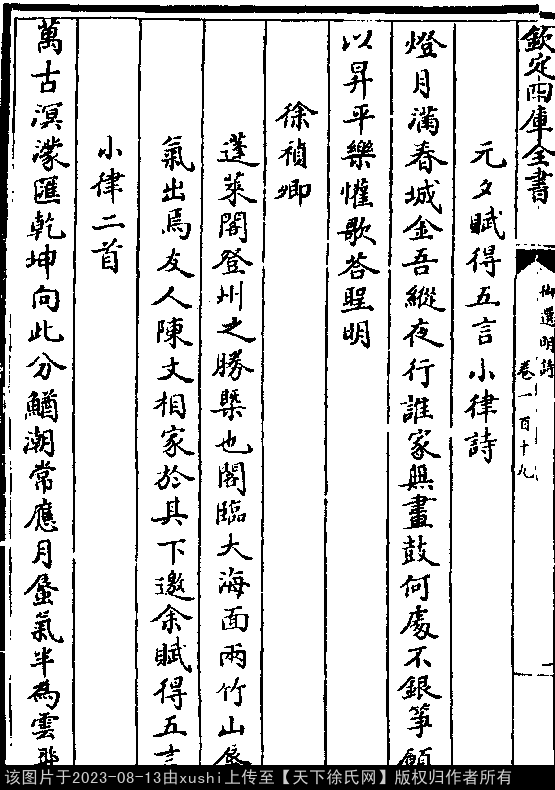 欽定四庫全書
御選明詩
卷一百十九
一
元夕賦得五言小律詩
燈月滿春城金吾縱夜行誰家無畫鼓何處不銀箏願
以昇平樂懽歌答聖明
徐禎卿
蓬萊閣登州之勝槩也閣臨大海面兩竹山蜃
氣出焉友人陳文相家於其下邀余賦得五言
小律二首
萬古溟濛匯乾坤向此分鰌潮常應月蜃氣半為雲
该图片于2023-08-13由xushi上传至【天下徐氏网】版权归作者所有